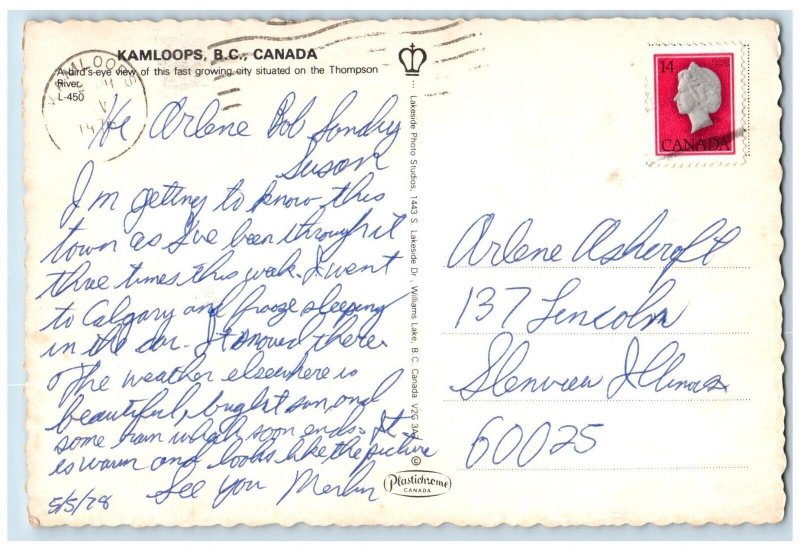 KAMLOOPS, B.C., CANADA
A bird's-eye view of this fast growing city situated on the Thompson
River.
L-450
KAMLOOPS
14
CANADA
Arlene Bob Sandry
Susan
I'm getting to know this
town as I've been through it
three times this week. I went
to Calgary and froze sleeping
in the car. It snowed there.
The weather elsewhere is
beautiful, bright sun, and
some rain which soon ends. It
is warm and looks like the picture
See you Merlin
5/5/78
Lakeside Photo Studios, 1443 S. Lakeside Dr., Williams Lake, B.C. Canada V2G 3A
©
Arlene Ashcroft
137 Lincoln
Glenview Illinois
60025
Plastichrome
CANADA